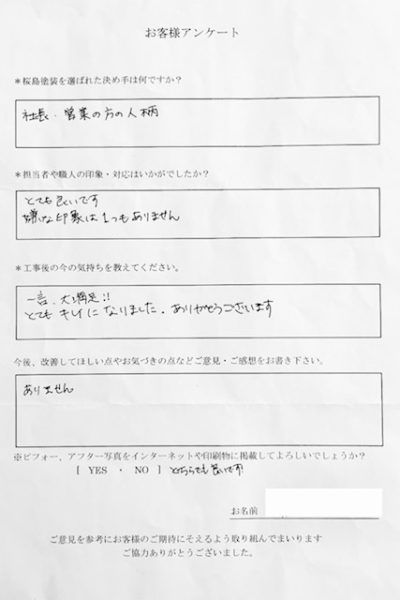 お客様アンケート
＊桜島塗装を選ばれた決め手は何ですか？
社長・営業の方の人柄
＊担当者や職人の印象・対応はいかがでしたか？
とても良いです
嫌な印象は1つもありません
＊工事後の今の気持ちを教えてください。
一言、大満足!!
とても キレイに なりました。ありがとうございます
今後、改善してほしい点やお気づきの点などご意見・ご感想をお書き下さい。
ありません
※ビフォー、アフター写真をインターネットや印刷物に掲載してよろしいでしょうか？
[ YES ・ NO ] どちらでも良いです
お名前
ご意見を参考にお客様のご期待にそえるよう取り組んでまいります
ご協力ありがとうございました。